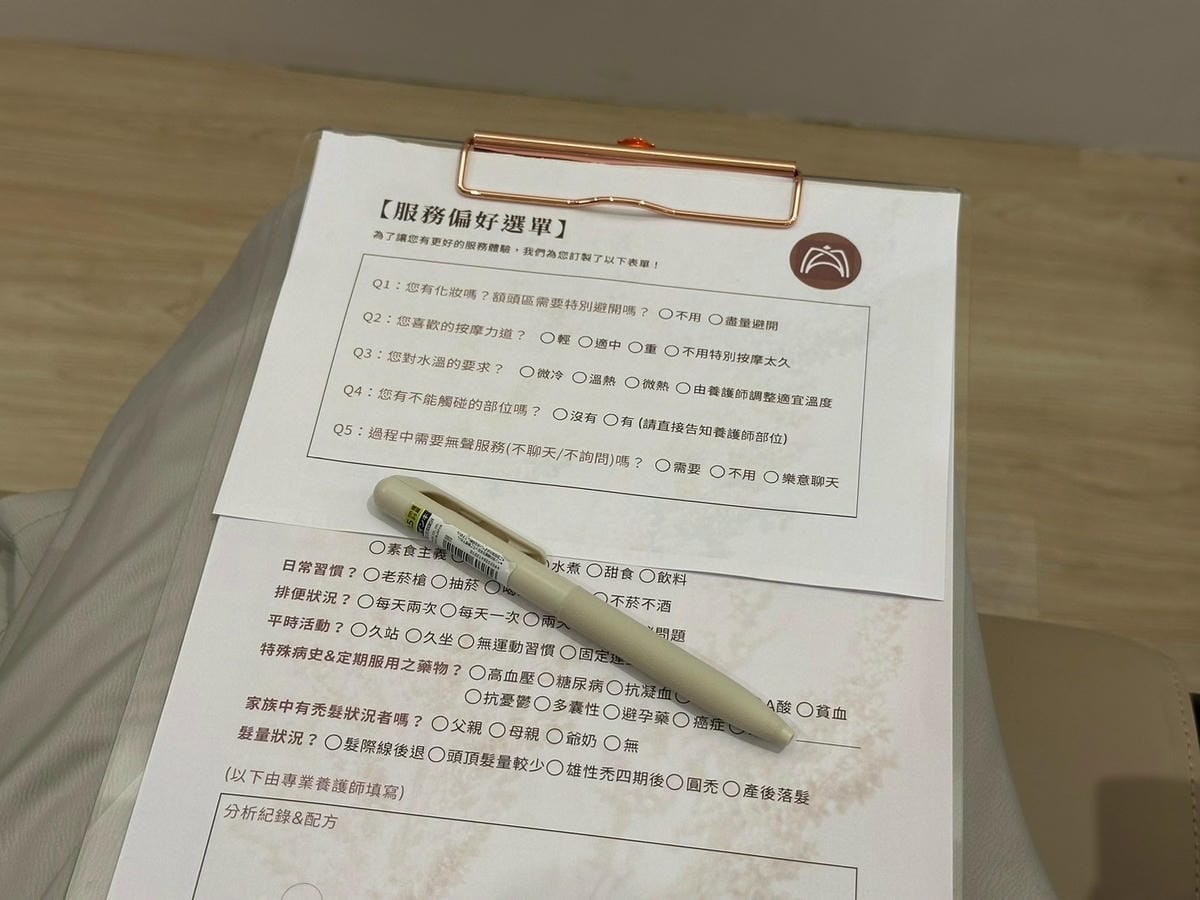 【服務偏好選單】
為了讓您有更好的服務體驗，我們為您訂製了以下表單！
Q1：您有化妝嗎？額頭區需要特別避開嗎？ ○不用 ○盡量避開
Q2：您喜歡的按摩力道？ ○輕 ○適中 ○重 ○不用特別按摩太久
Q3：您對水溫的要求？ ○微冷 ○溫熱 ○微熱 ○由養護師調整適宜溫度
Q4：您有不能觸碰的部位嗎？ ○沒有 ○有 (請直接告知養護師部位)
Q5：過程中需要無聲服務(不聊天/不詢問)嗎？ ○需要 ○不用 ○樂意聊天
○素食主義 水煮 ○甜食 ○飲料
日常習慣？ ○老菸槍 ○抽菸 ○不菸不酒
排便狀況？ ○每天兩次 ○每天一次 ○兩天 問題
平時活動？ ○久站 ○久坐 ○無運動習慣 ○固定運
特殊病史&定期服用之藥物？ ○高血壓 ○糖尿病 ○抗凝血 A酸 ○貧血
○抗憂鬱 ○多囊性 ○避孕藥 ○癌症
家族中有禿髮狀況者嗎？ ○父親 ○母親 ○爺奶 ○無
髮量狀況？ ○髮際線後退 ○頭頂髮量較少 ○雄性禿四期後 ○圓禿 ○產後落髮
(以下由專業養護師填寫)
分析紀錄&配方